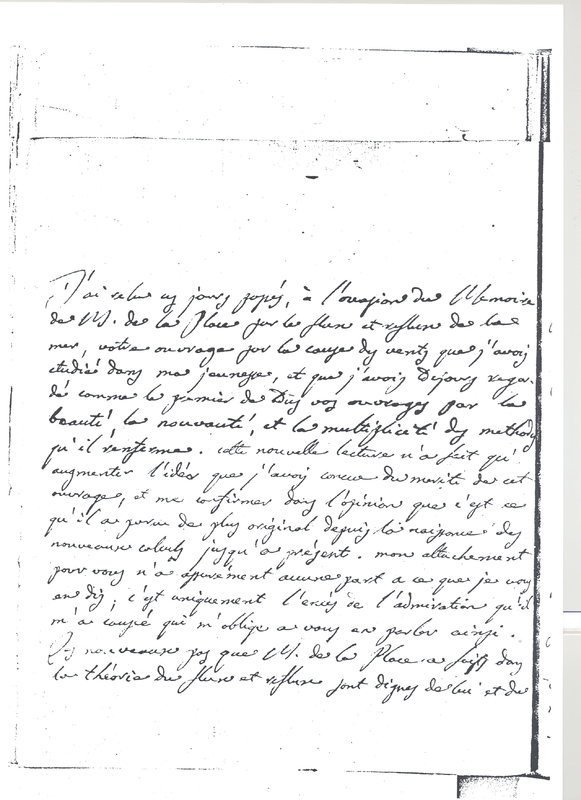 J'ai relu ces jours passés, à l'occasion du Memoire
de M. de la Place sur le flux et reflux de la
mer, votre ouvrage sur la cause des vents que j'avois
etudié dans ma jeunesse, et que j'avois toujours regar-
dé comme le premier de vos ouvrages par la
beauté, la nouveauté, et la multiplicité des methodes
qu'il renferme. cette nouvelle lecture n'a fait qu'
augmenter l'idée que j'avois concue du merite de cet
ouvrage, et me confirmer dans l'opinion que c'est ce
qu'il a paru de plus original depuis la naissance des
nouveaux calculs jusqu'à présent. mon attachement
pour vous n'a assurément aucune part a ce que je vous
en dis, c'est uniquement l'excès de l'admiration qu'il
m'a causé qui m'oblige a vous en parler ainsi.
Les nouveaux pas que M. de la Place a faits dans
la théorie du flux et reflux sont dignes de lui et du